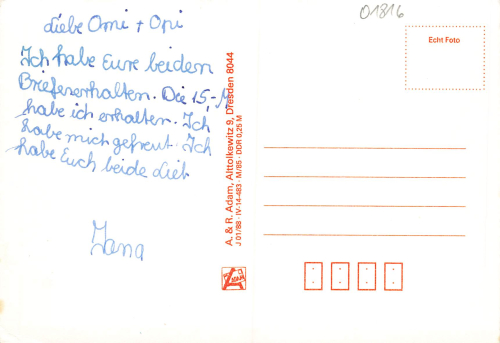 Liebe Omi + Opi
Ich habe Eure beiden
Briefe erhalten. Die 15,-M
habe ich erhalten. Ich
habe mich gefreut. Ich
habe Euch beide Lieb
Jana
A. & R. Adam, Alttolkewitz 9, Dresden 8044
J 01/88 · IV-14-483 · M/85 · DDR 0,25 M
01816
Echt Foto